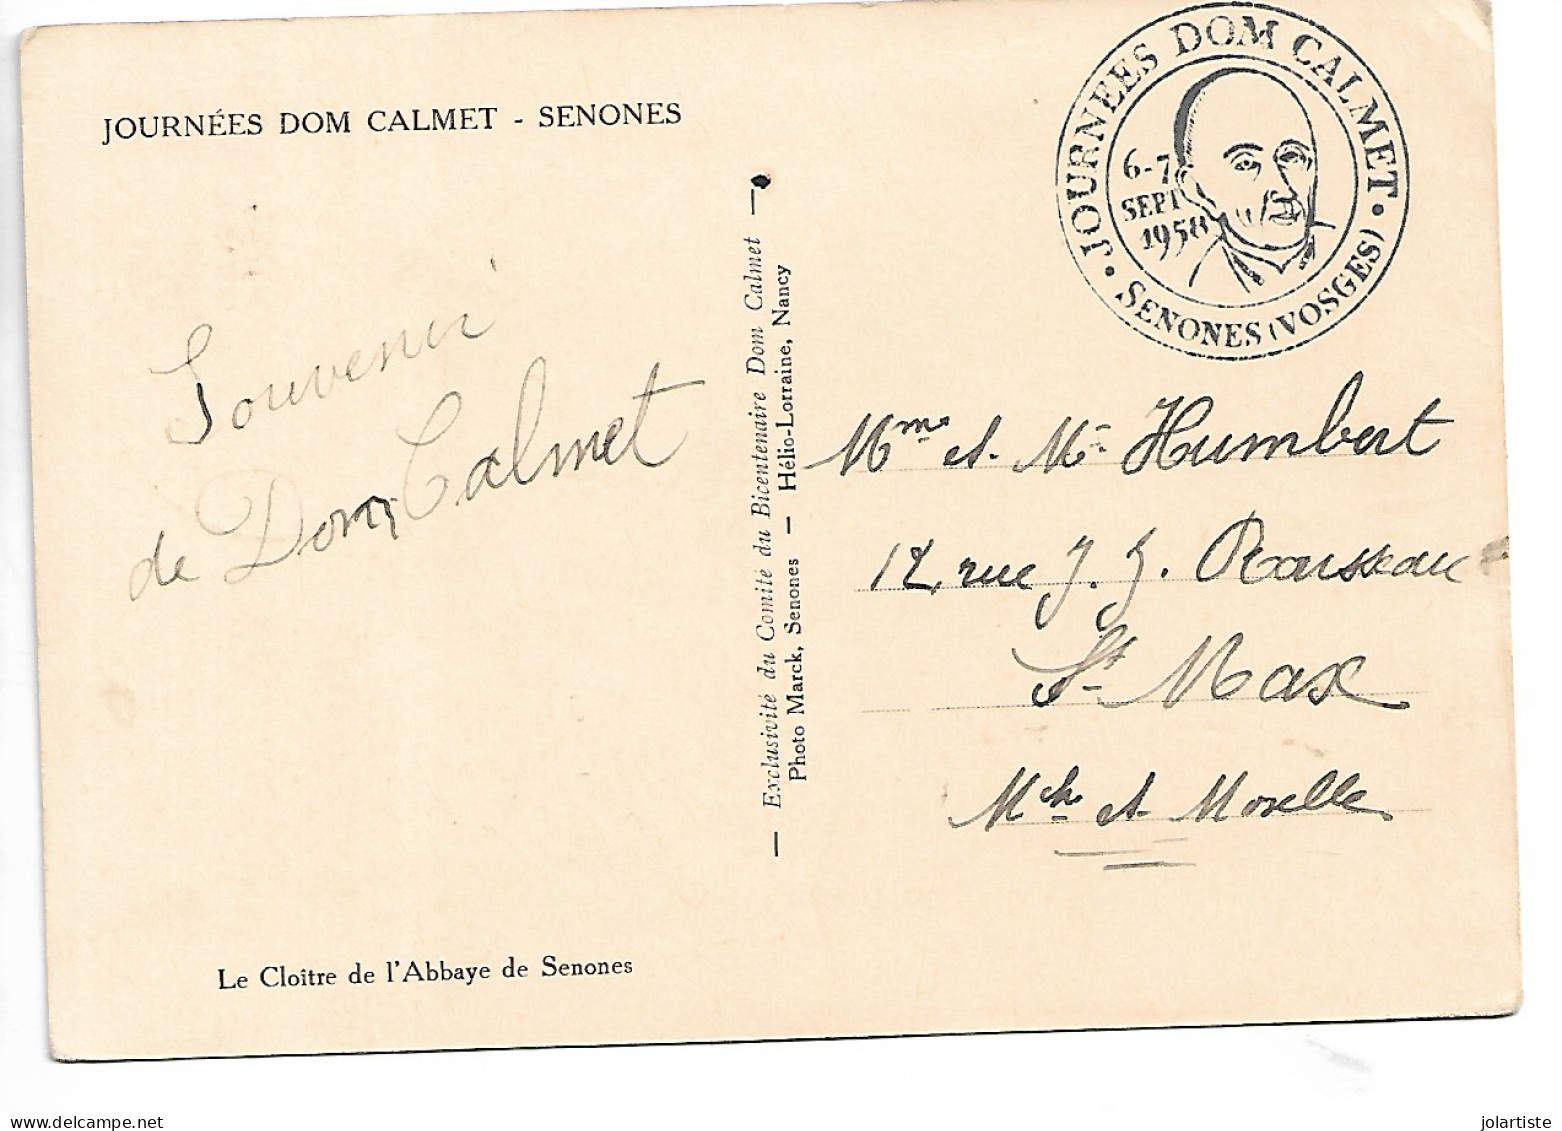 JOURNÉES DOM CALMET - SENONES
Souvenir
de Dom Calmet
Le Cloître de l'Abbaye de Senones
— Exclusivité du Comité du Bicentenaire Dom Calmet —
Photo Marck, Senones — Hélio-Lorraine, Nancy
• JOURNEES DOM CALMET •
6-7
SEPT
1958
SENONES (VOSGES)
Mme et Mr Humbert
12 rue J. J. Rousseau
St Max
Mthe et Moselle
www.delcampe.net
jolartiste